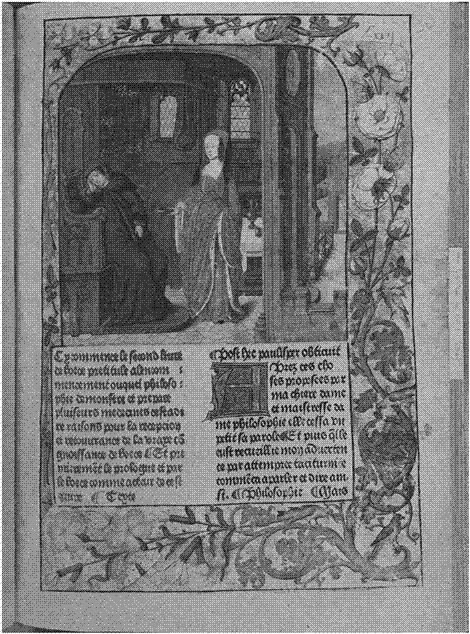 Cy commence le second livre
de boece
philoso
phie demonstre et prepare
plusieurs
re raisons pour la reception
et recouvrance de la vraye cō
gnoissance de boece Et pre
mierement le prologue et par
le boece comme acteur de ce se
Texte
Post hec paulisper obticuit
Aprez ces cho
ses proposees par
ma chiere dame
et maistresse da
me philosophie elle cessa vn
petit sa parole Et puis q̄lle
eust recueillie mon aduerten
ce par attempree taciturnite
commēca a parler et dire ain
si. Philosophie Mais